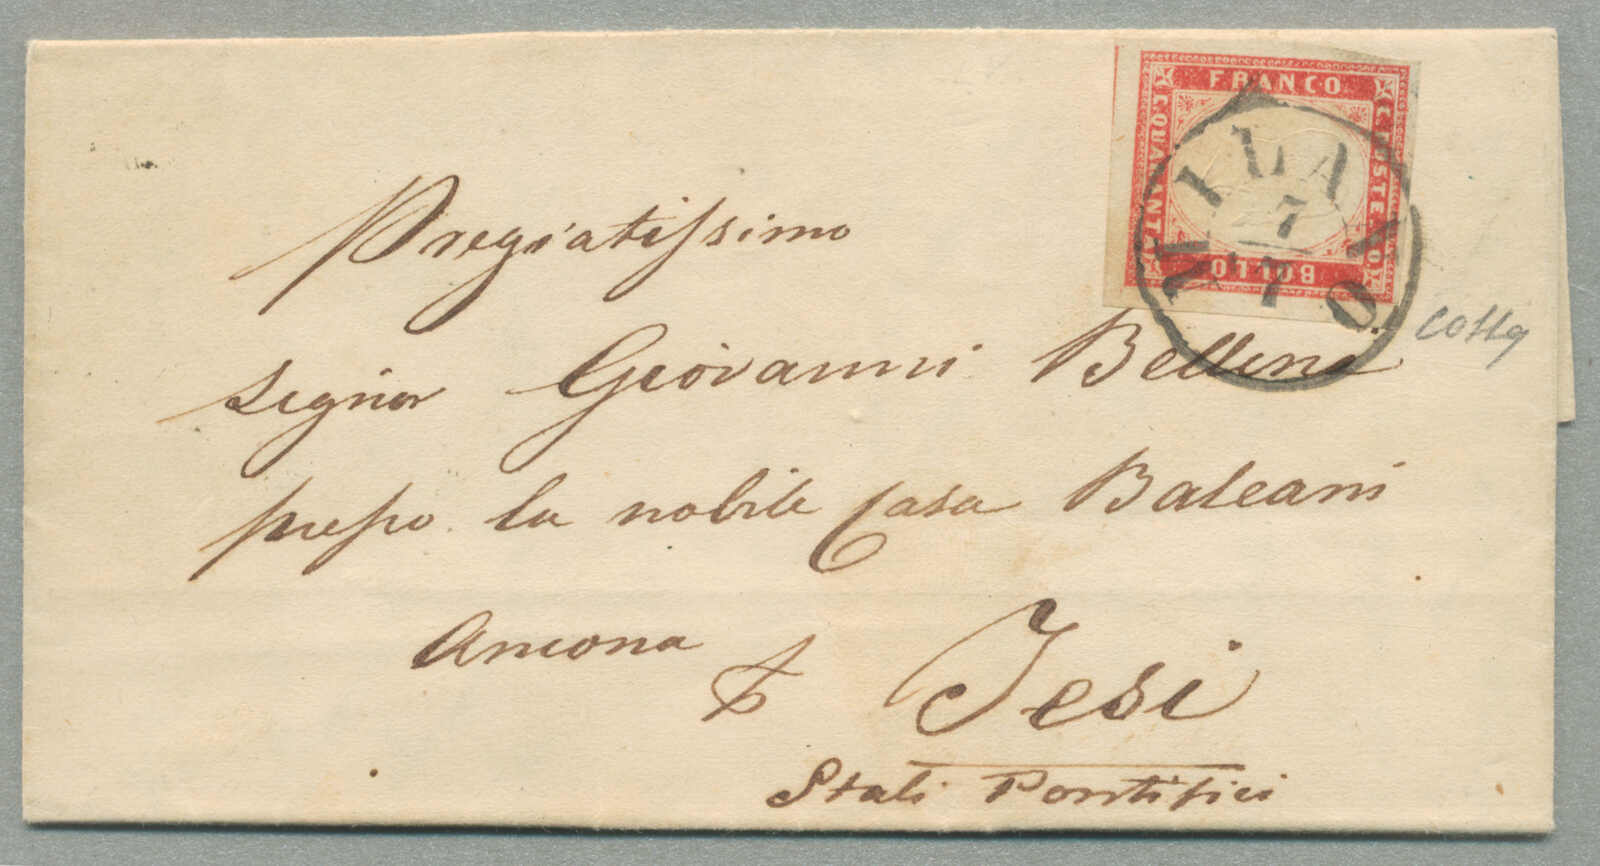 FRANCO
C. POSTE
QUARANTA
BOLLO
MILANO
7
7
Pregiatissimo
Signor Giovanni Bellini
presso la nobile Casa Baleani
Ancona
Jesi
Stati Pontifici